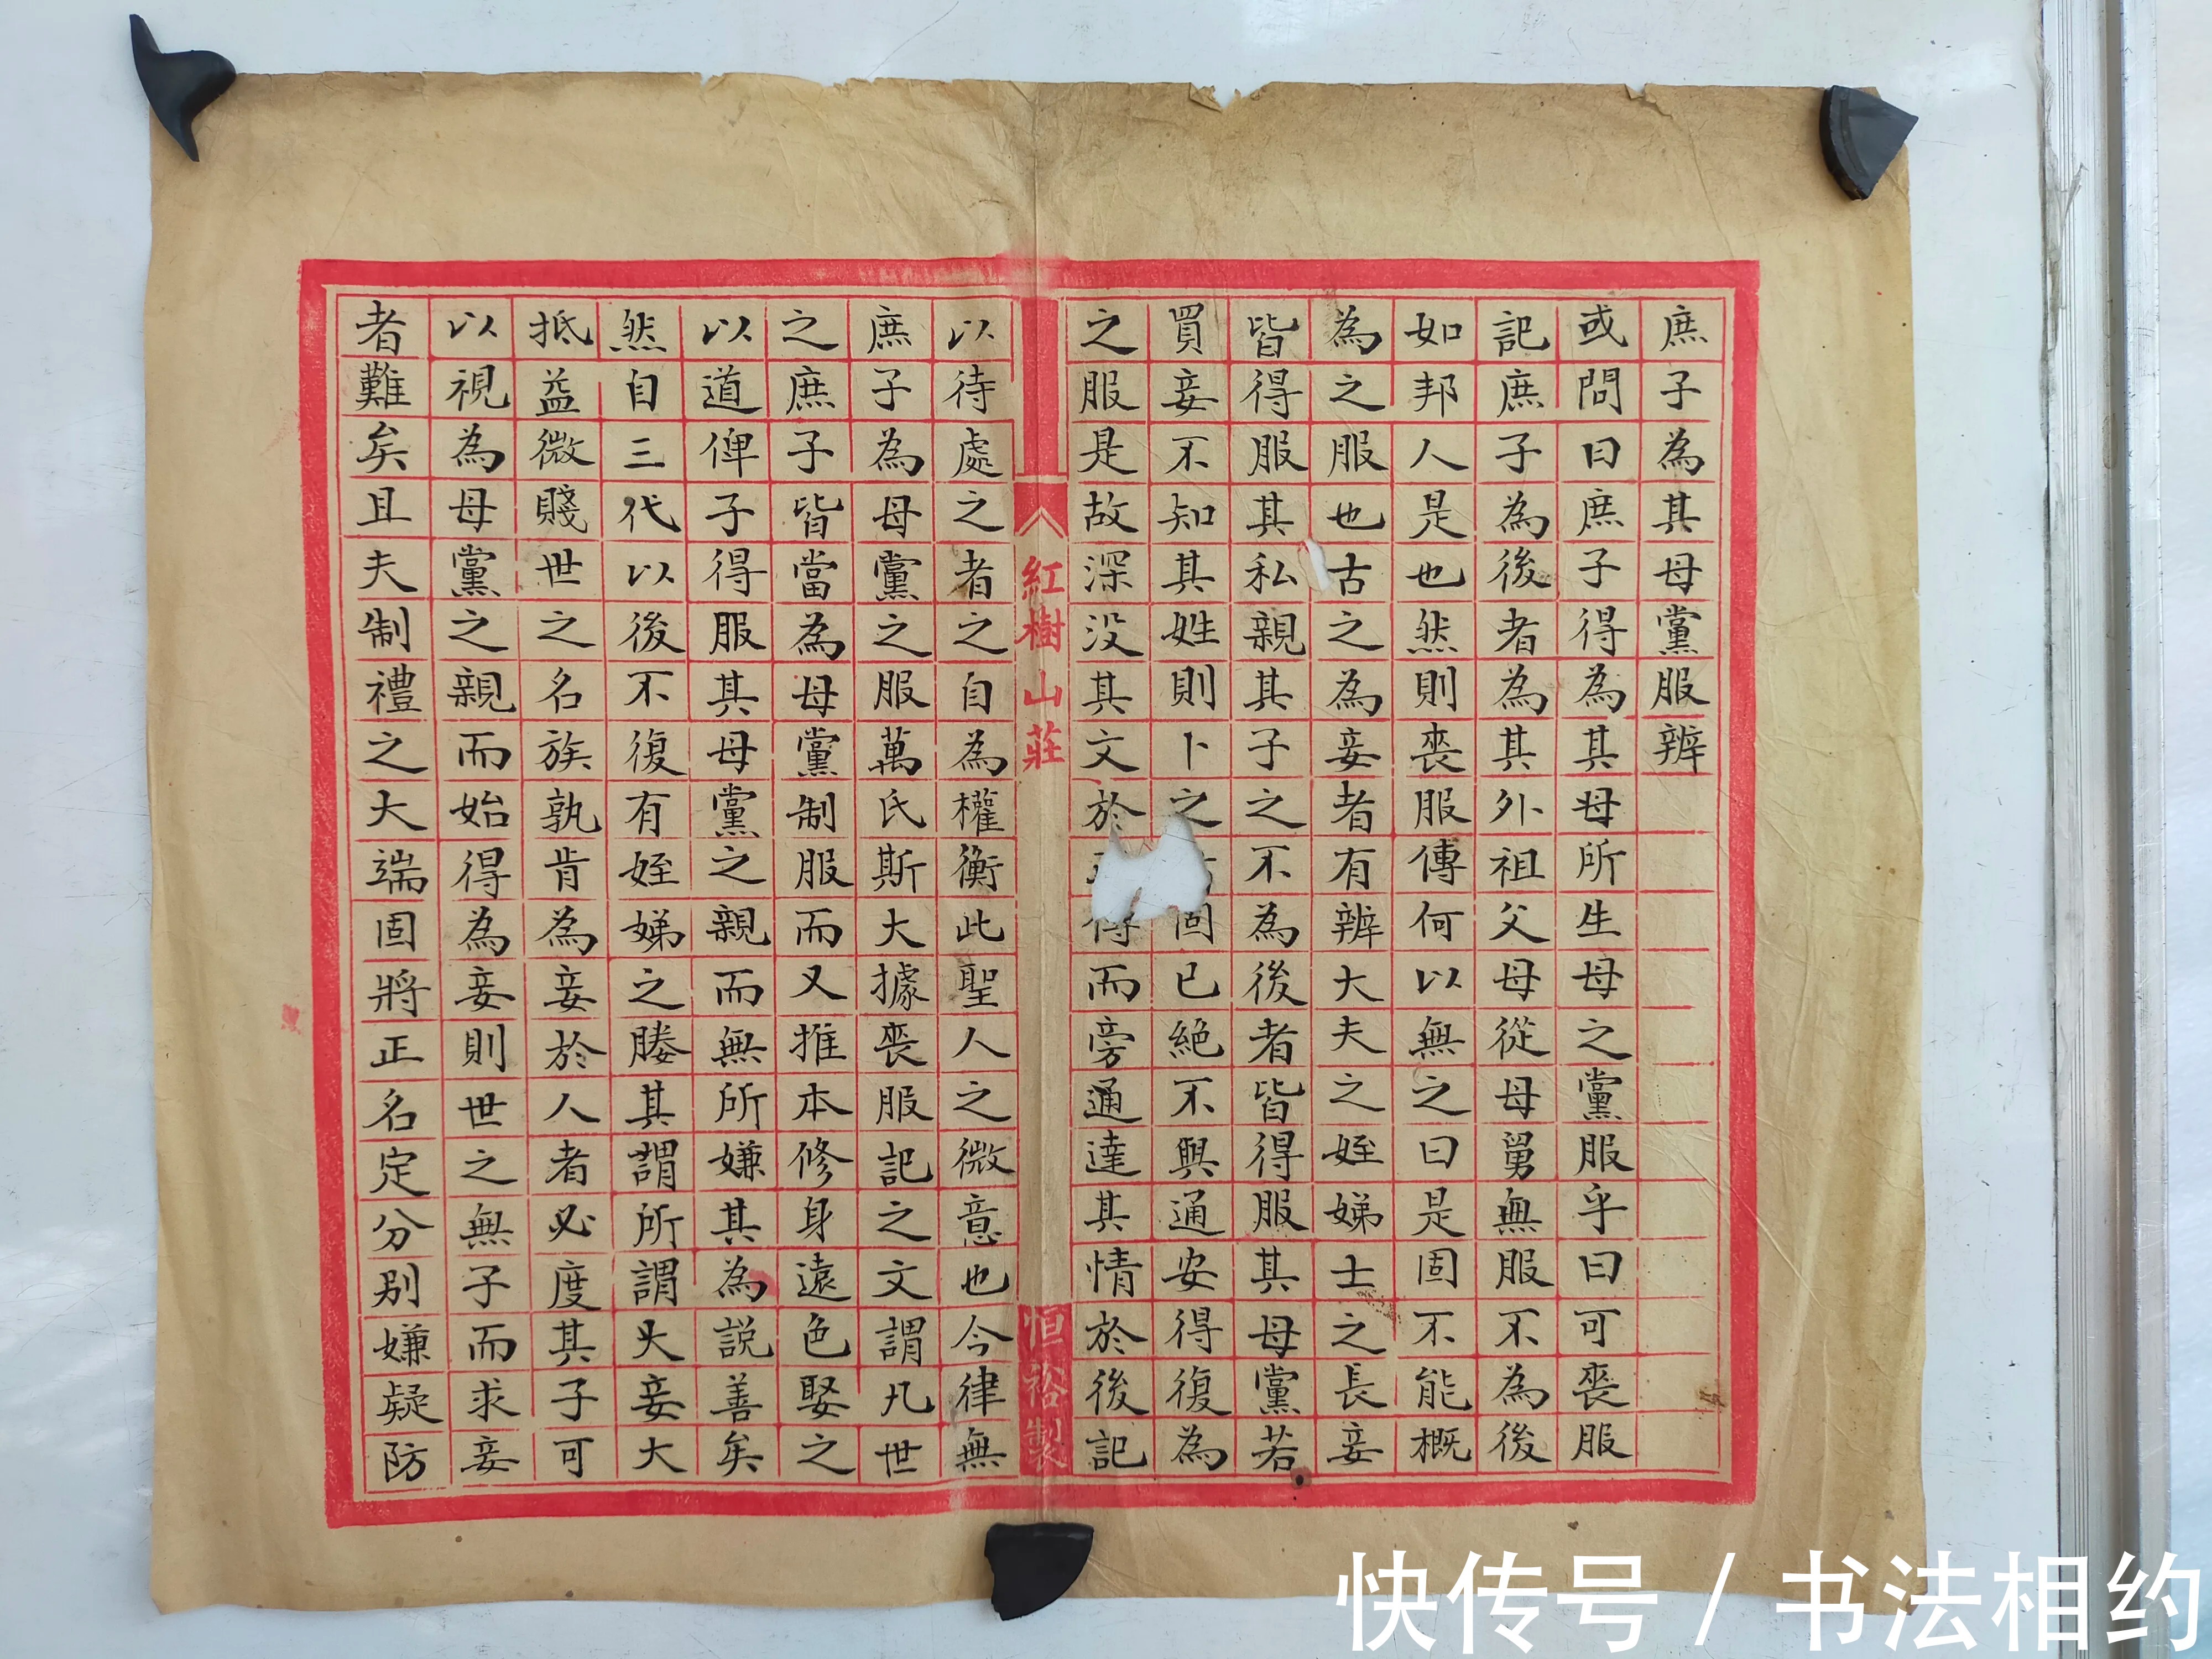 庶子為其母黨服辨
或問曰庶子得為其母所生母之黨服乎曰可喪服
記庶子為後者為其外祖父母從母舅無服不為後
如邦人是也然則喪服傳何以無之曰是固不能概
為之服也古之為妾者有辨大夫之姪娣士之長妾
皆得服其私親其子之不為後者皆得服其母黨若
買妾不知其姓則卜之固已絕不與通安得復為
之服是故深没其文於傳而旁通達其情於後記
紅樹山莊
恒裕製
以待處之者之自為權衡此聖人之微意也今律無
庶子為母黨之服萬氏斯大據喪服記之文謂凡世
之庶子皆當為母黨制服而又推本修身遠色娶之
以道俾子得服其母黨之親而無所嫌其為説善矣
然自三代以後不復有姪娣之媵其謂所謂大妾大
抵益微賤世之名族孰肯為妾於人者必度其子可
以視為母黨之親而始得為妾則世之無子而求妾
者難矣且夫制禮之大端固將正名定分别嫌疑防
快传号 / 书法相约